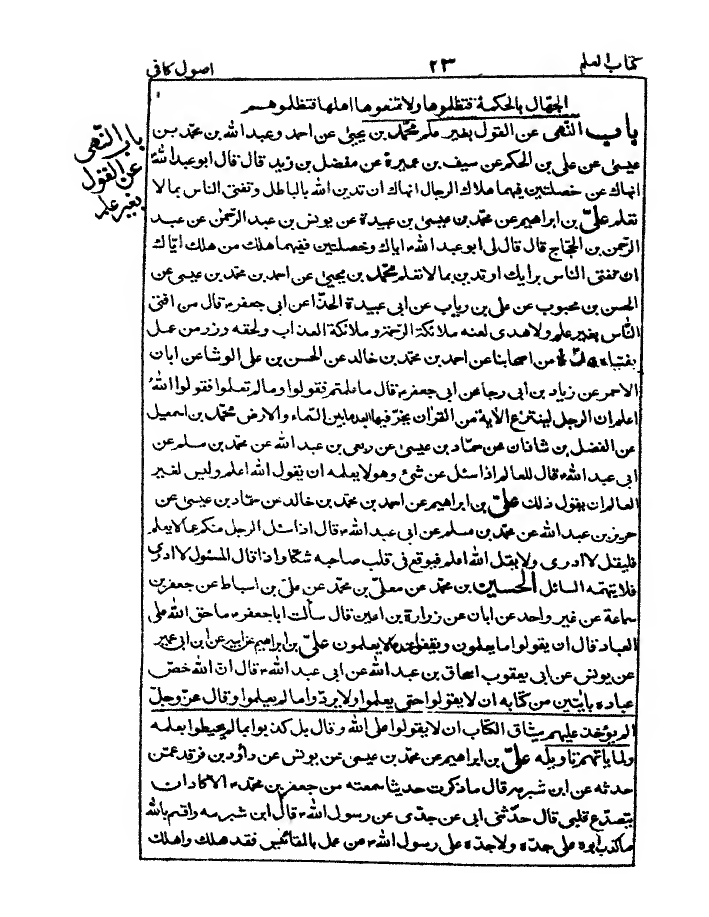 كتاب العلم
٢٣
اصول كافى
الجهال بالحكمة فتظلوها ولا تمنعوها اهلها فتظلوهم
باب النهى عن القول بغير علم
باب النهى عن القول بغير علم محمد بن يحيى عن احمد وعبد الله بن محمد بن
عيسى عن على بن الحكم عن سيف بن عميرة عن مفضل بن زيد قال قال ابو عبد الله
انهاك عن خصلتين فيهما هلاك الرجال انهاك ان تدين الله بالباطل وتفتى الناس بما لا
تعلم علىّ بن ابراهيم عن محمد بن عيسى بن عبيدة عن يونس بن عبد الرحمن عن عبد
الرحمن بن الحجاج قال قال لى ابو عبد الله ع اياك وخصلتين ففيهما هلك من هلك ايّاك
ان تفتى الناس برايك او تدين بما لا تعلم محمد بن يحيى عن احمد بن محمد بن عيسى عن
الحسن بن محبوب عن على بن رياب عن ابى عبيدة الحذّا عن ابى جعفر ع قال من افتى
النّاس بغير علم ولا هدى لعنه ملائكة الرحمة و ملائكة العذاب ولحقه وزر من عمل
بفتياه عدّة من اصحابنا عن احمد بن محمد بن خالد عن الحسن بن على الوشا عن ابان
الاحمر عن زياد بن ابى رجا عن ابى جعفر ع قال ما علمتم فقولوا وما لم تعلموا فقولوا اللهُ
اعلم ان الرجل لينتزع الآية من القرآن يخرّ فيها ابعد ما بين السّماء والارض محمّد بن اسمعيل
عن الفضل بن شاذان عن حمّاد بن عيسى عن ربعى بن عبد الله عن محمد بن مسلم عن
ابى عبد الله ع قال للعالم اذا سئل عن شئ وهو لا يعلمه ان يقول الله اعلم وليس لغير
العالم ان يقول ذلك علىّ بن ابراهيم عن احمد بن محمد بن خالد عن حمّاد بن عيسى عن
حريز بن عبد الله عن محمد بن مسلم عن ابى عبد الله ع قال اذا سئل الرجل منكم عما لا يعلم
فليقل لا ادرى ولا يقل الله اعلم فيوقع فى قلب صاحبه شكا واذا قال المسئول لا ادرى
فلا يتهمه السائل الحسين بن محمد عن معلّى بن محمد عن علىّ بن اسباط عن جعفر بن
سماعة عن غير واحد عن ابان عن زرارة بن اعين قال سألت ابا جعفر ع ما حق الله على
العباد قال ان يقولوا ما يعلمون ويقفوا عند ما لا يعلمون علىّ بن ابراهيم عن ابيه عن ابن ابى عمير
عن يونس عن ابى يعقوب اسحاق بن عبد الله عن ابى عبد الله ع قال انّ الله خصّ
عباده بآيتين من كتابه ان لا يقولوا حتى يعلموا ولا يردّوا ما لم يعلموا وقال عزّ وجلّ
الم يؤخذ عليهم ميثاق الكتاب ان لا يقولوا على الله وقال بل كذبوا بما لم يحيطوا بعلمه
ولما ياتهم تاويله علىّ بن ابراهيم عن محمد بن عيسى عن يونس عن داؤد بن فرقد عمّن
حدثه عن ابن شبرمه قال ما ذكرت حديثا سمعته من جعفر بن محمّد ع الا كاد ان
يتصدّع قلبى قال حدّثنى ابى عن جدّى عن رسول الله ص قال ابن شبرمه واقسم بالله
ما كذب ابوه على جدّه ولا جدّه على رسول الله ص من عمل بالمقائيس فقد هلك واهلك